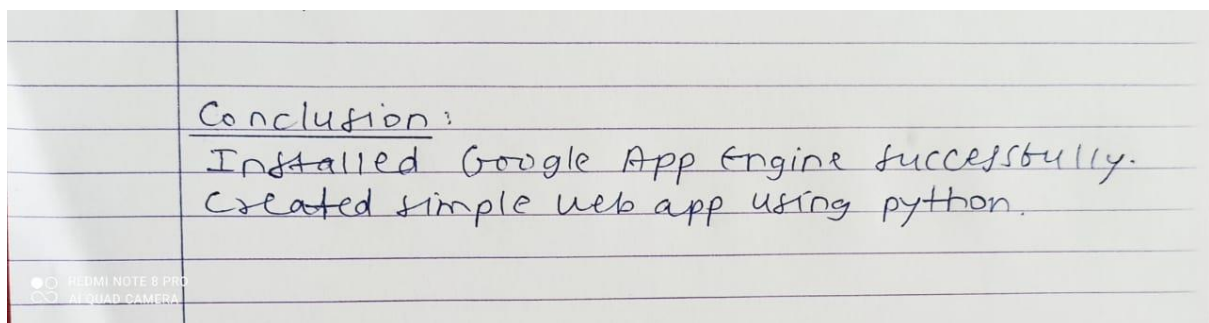 Conclusion:
Installed Google App Engine successfully.
Created simple web app using python.
REDMI NOTE 8 PRO
AI QUAD CAMERA